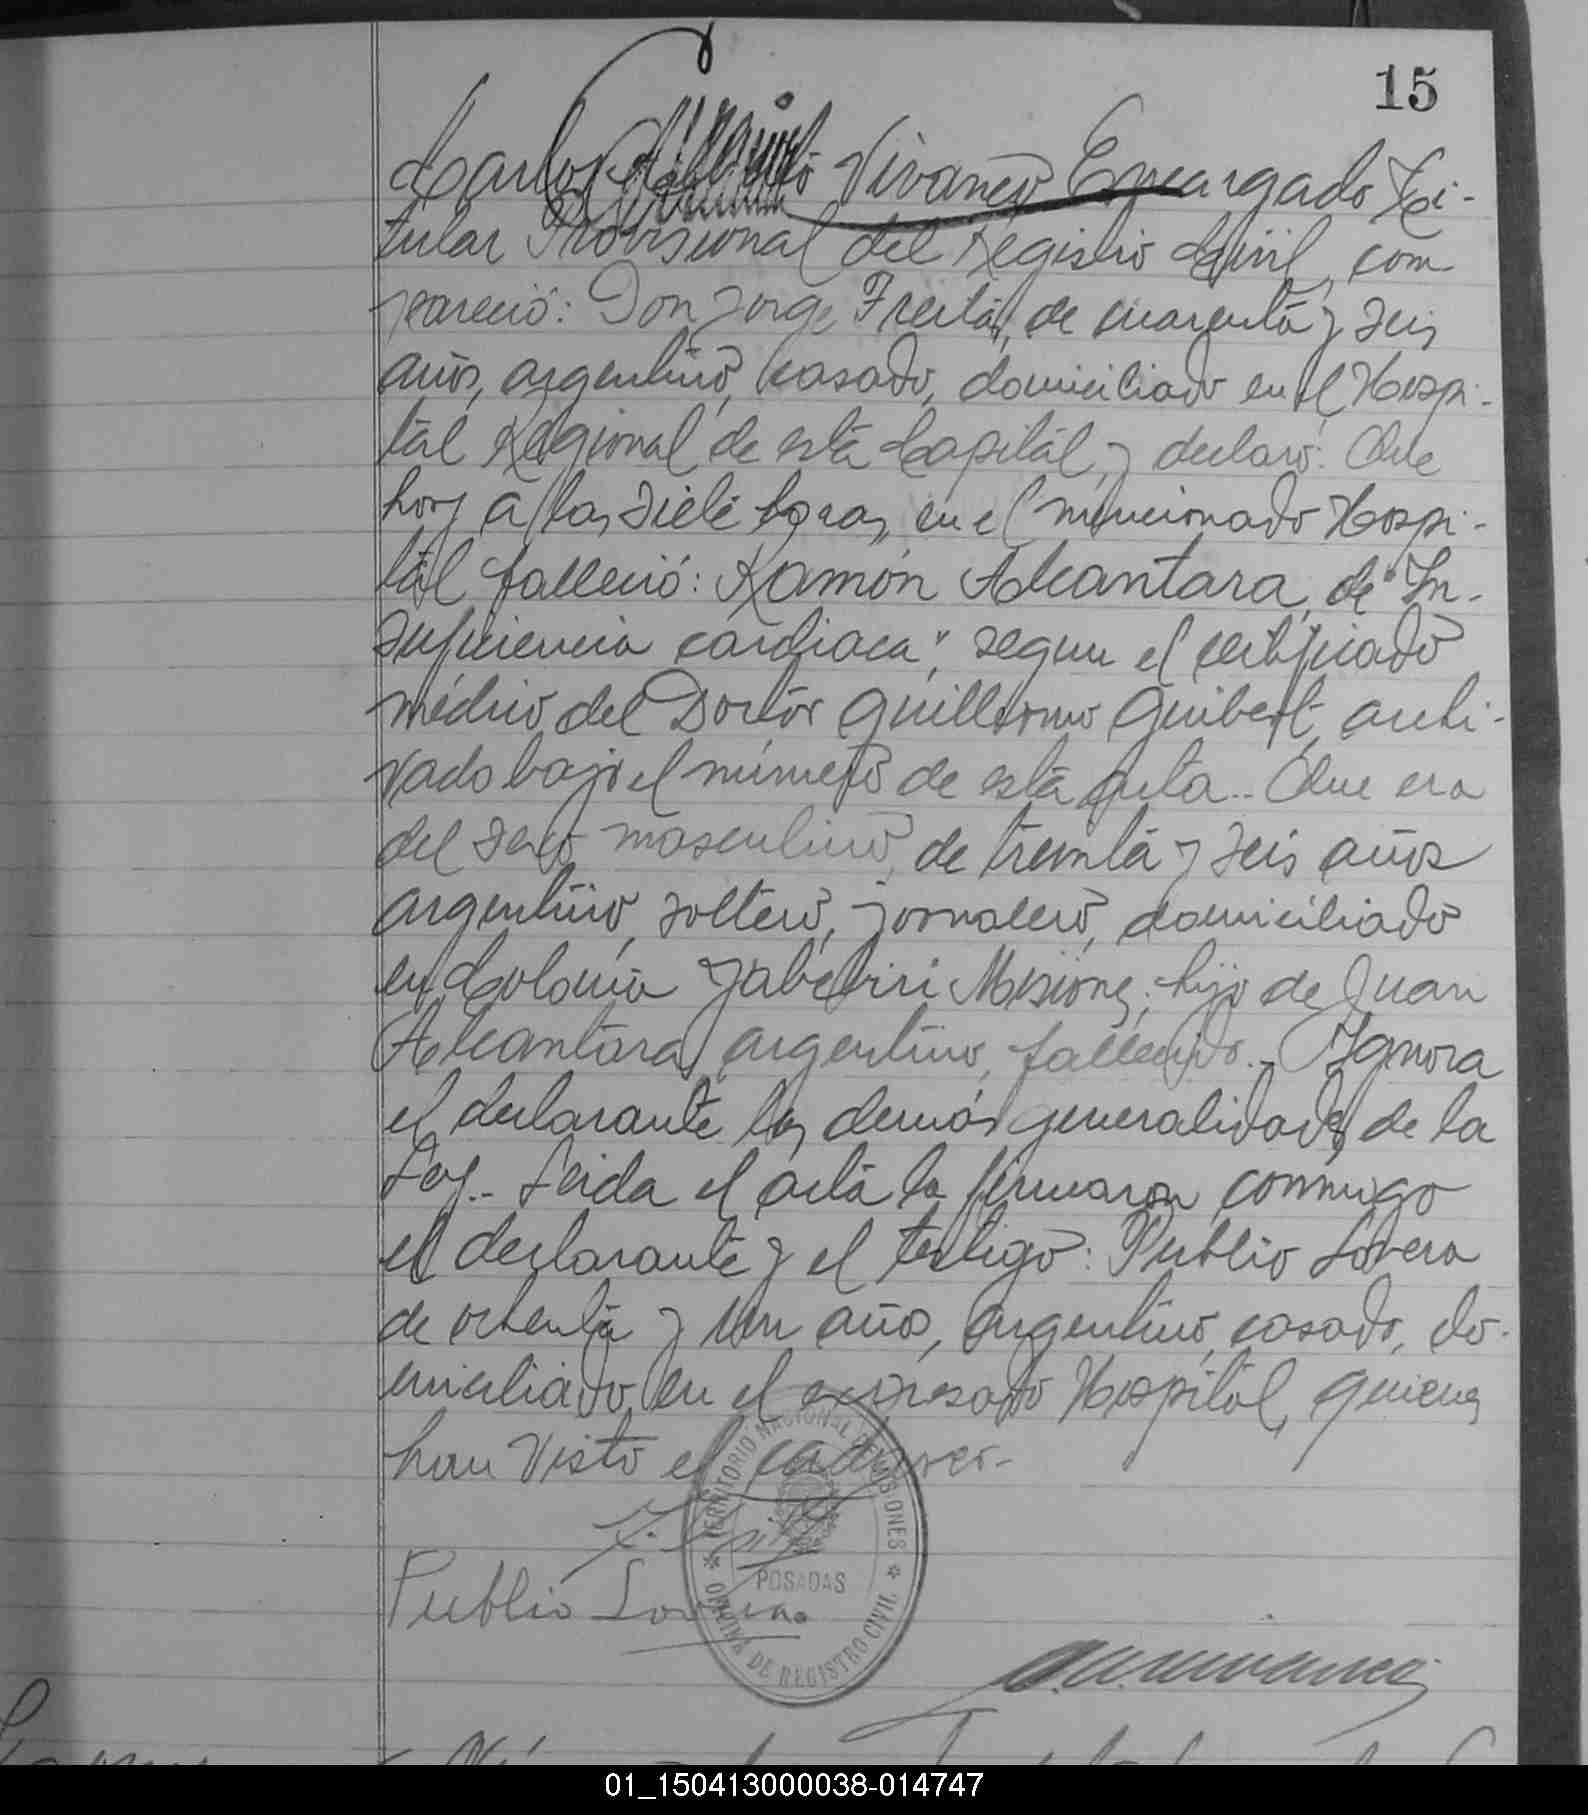 15
Carlos Vivanco Encargado Ti-
tular Provisional del Registro Civil, com
pareció: Don Jorge Freita, de cuarenta y seis
años, argentino, casado, domiciliado en el Hospi-
tal Regional de esta Capital, y declaró: Que
hoy a las siete horas, en el mencionado Hospi-
tal falleció: Ramón Alcantara, de "In-
suficiencia cardiaca", segun el certificado
médico del Doctor Guillermo Guibert, archi-
vado bajo el número de esta acta.. Que era
del sexo masculino, de treinta y seis años
argentino, soltero, jornalero, domiciliado
en Colonia Yabebiri Misiones; hijo de Juan
Alcantara, argentino, fallecido.. Ignora
el declarante las demás generalidades de la
Ley.. Leida el acta la firmaron conmigo
el declarante y el testigo: Publio Lovera
de ochenta y un años, argentino, casado, do-
miciliado en el expresado Hospital, quienes
han visto el cadaver.-
TERRITORIO NACIONAL DE MISIONES
POSADAS
OFICINA DE REGISTRO CIVIL
Publio Lovera
01_150413000038-014747